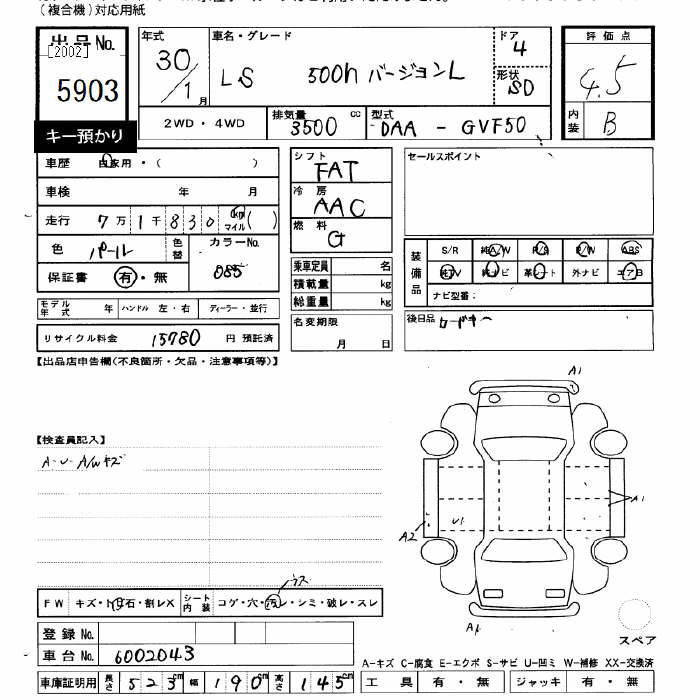 (複合機)対応用紙
出品No.
[2002]
5903
キー預かり
年式
30/1月
車名・グレード
LS 500h バージョンL
ドア
4
形状
SD
2WD・4WD
排気量
3500 cc
型式
DAA - GVF50
評価点
4.5
内装
B
車歴 自家用・( )
車検 年 月
走行 7万1千830 km マイル( )
色 パール 色替
カラーNo.
085
保証書 有・無
モデル年式 年 ハンドル 左・右 ディーラー・並行
リサイクル料金 15780 円 預託済
シフト
FAT
冷房
AAC
燃料
G
乗車定員 名
積載量 kg
総重量 kg
名変期限
月 日
セールスポイント
装備品
S/R 純A/W P/S P/W ABS
純TV 純ナビ 革シート 外ナビ エアB
ナビ型番:
後日品 カードキー
【出品店申告欄(不良箇所・欠品・注意事項等)】
【検査員記入】
A-U- A/Wキズ
A1
A1
A2
U1
A1
ウス
FW キズ・トビ石・割レX シート内装 コゲ・穴・汚レ・シミ・破レ・スレ
登録No.
車台No. 6002043
車庫証明用 長さ 523cm 幅 190cm 高さ 145cm
スペア
A-キズ C-腐食 E-エクボ S-サビ U-凹ミ W-補修 XX-交換済
工具 有・無 ジャッキ 有・無